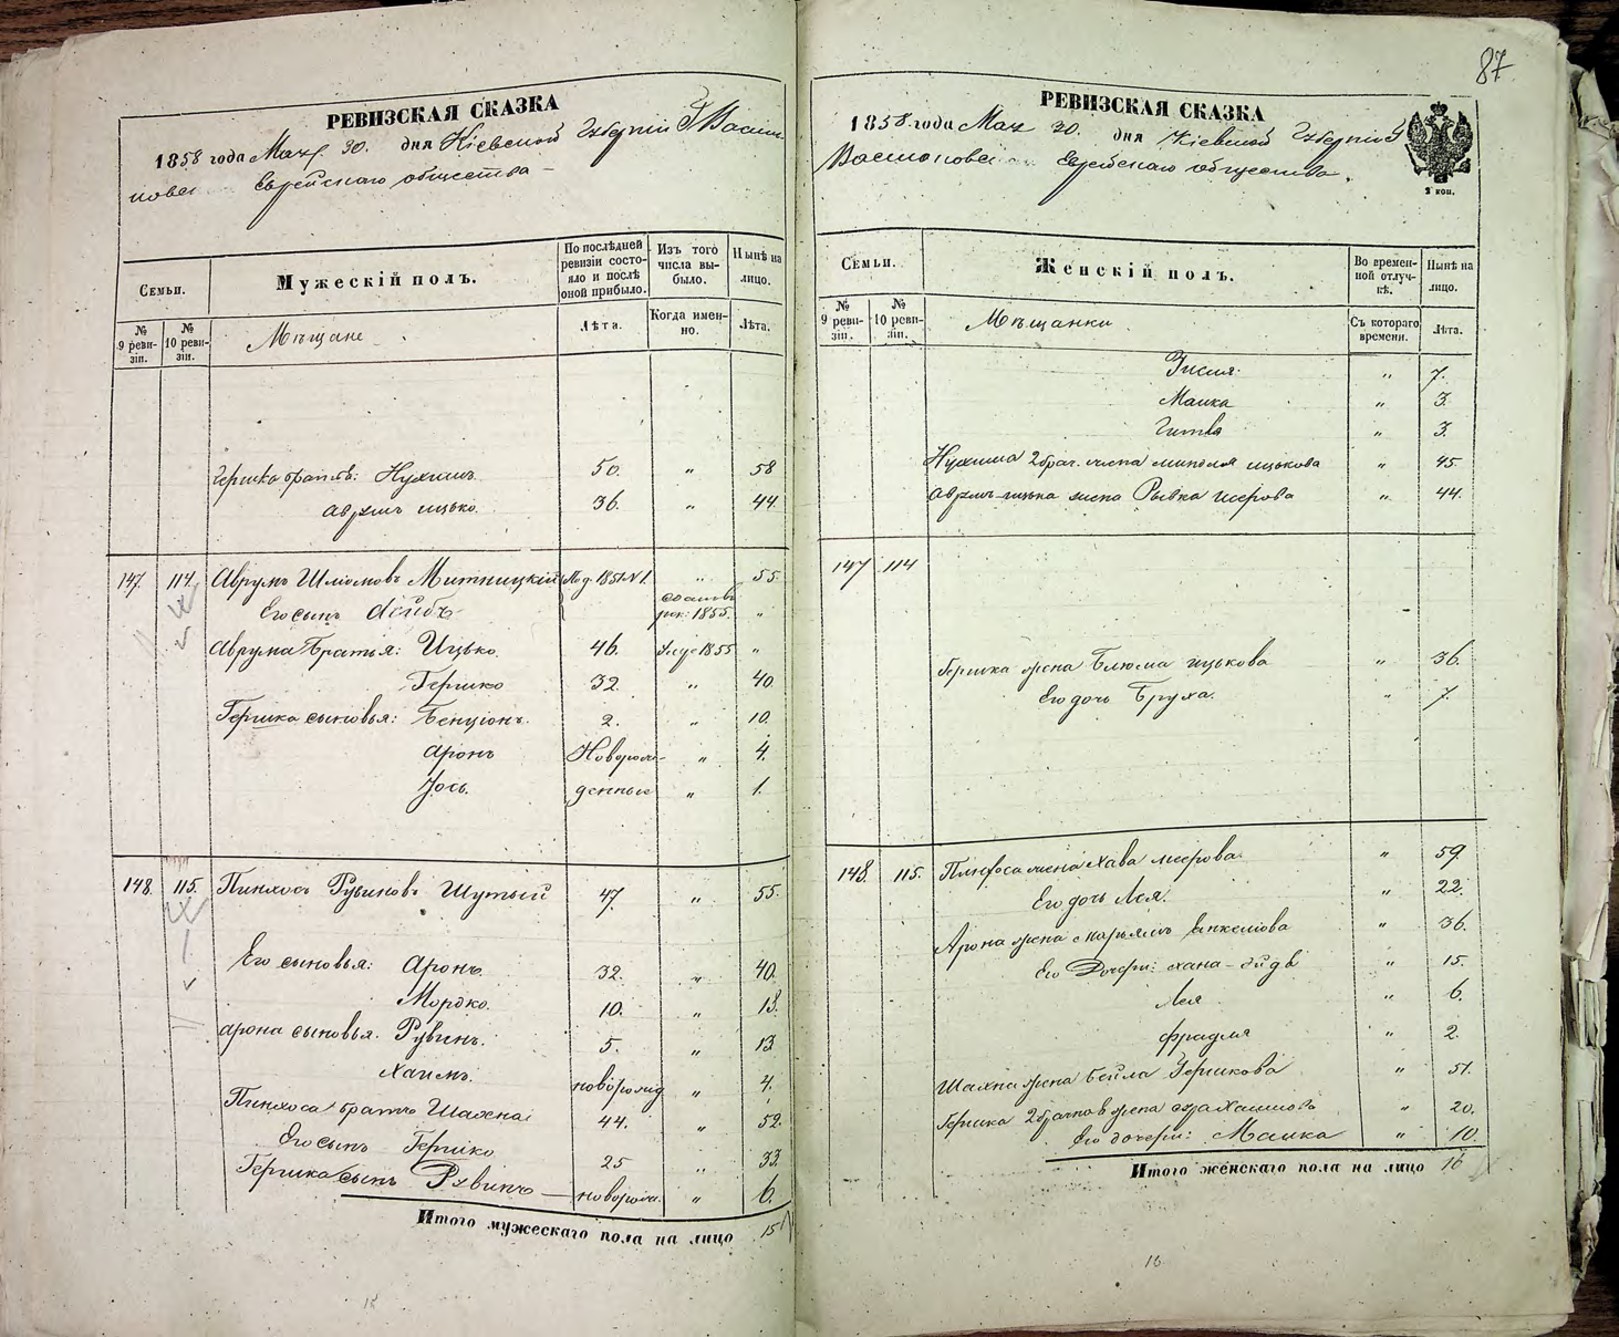 РЕВИЗСКАЯ СКАЗКА
1858 года Мая 30. дня Кіевской Губерніи Г Васил
кова Еврейскаго общества
Семьи.
Мужескій полъ.
По послѣдней ревизіи состояло и послѣ оной прибыло.
Изъ того числа выбыло.
Нынѣ на лицо.
№ 9 ревизіи.
№ 10 ревизіи.
Мѣщане
Лѣта.
Когда именно.
Лѣта.
Гершка братья: Нухимъ 50. " 58
Аврумъ ицько 36. " 44
147. 114. Аврумъ Шлиомовъ Митницкій По д. 1851 № 1. " 55.
Его сынъ Лейбъ рек: 1855. "
Аврума Братья: Ицько 46. 1855 "
Гершко 32. " 40
Гершка сыновья: Бенціонъ 2. " 10.
Аронъ Новорож- " 4.
Іось денные " 1.
148. 115. Пинхосъ Рувиновъ Шутый 47. " 55.
Его сыновья: Аронъ 32. " 40.
Мордко. 10. " 18.
Арона сыновья. Рувинъ. 5. " 13
Хаимъ новорожд " 4.
Пинхоса братъ Шахна 44. " 52.
Его сынъ Гершко 25 " 33.
Гершка сынъ Рувинъ новорож. " 6.
Итого мужескаго пола на лицо 15
87
РЕВИЗСКАЯ СКАЗКА
1858 года Мая 30. дня Кіевской Губерніи Г
Василькова Еврейскаго общества.
Семьи.
Женскій полъ.
Во временной отлучкѣ.
Нынѣ на лицо.
№ 9 ревизіи.
№ 10 ревизіи.
Мѣщанки
Съ котораго времени.
Лѣта.
" 7.
Малка " 3.
Гитля " 3.
Нухима 2 брач. жена Миндля ицькова " 45.
Аврумъ-ицька жена Рывка " 44.
147 114
Гершка жена Блюма ицькова " 36.
Его дочь Бруха. " 7.
148. 115. Пинхоса жена Хава меерова " 59.
Его дочь Лея. " 22.
Арона жена Марьямъ Янкелиова " 36.
Его Дочери: Хана " 15.
Лея " 6.
Фрадля " 2.
Шахны жена Бейла Гершкова " 51.
Гершка жена " 20.
Его дочери: Малка " 10.
Итого женскаго пола на лицо 16
16